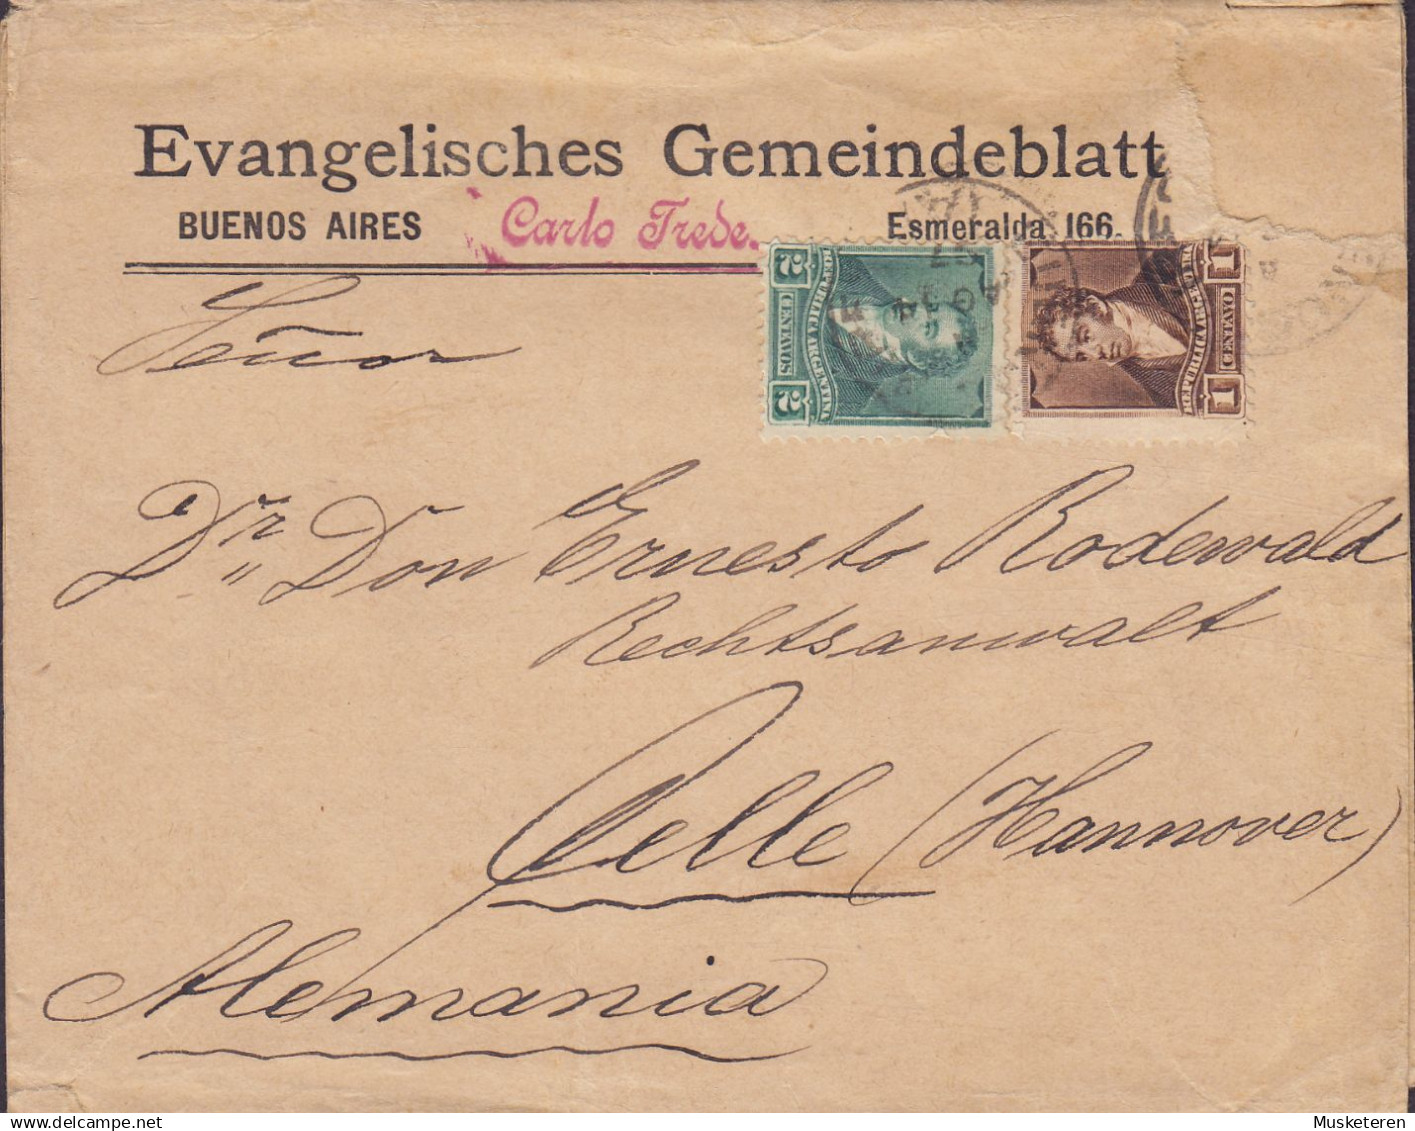 Evangelisches Gemeindeblatt
BUENOS AIRES Carlo Trede. Esmeralda 166.
2 CENTAVOS 2
REPUBLICA ARGENTINA
1 CENTAVO 1
REPUBLICA ARGENTINA
Señor
Dr. Don Ernesto Rodewald
Rechtsanwalt
Celle (Hannover)
Alemania
Musketeren